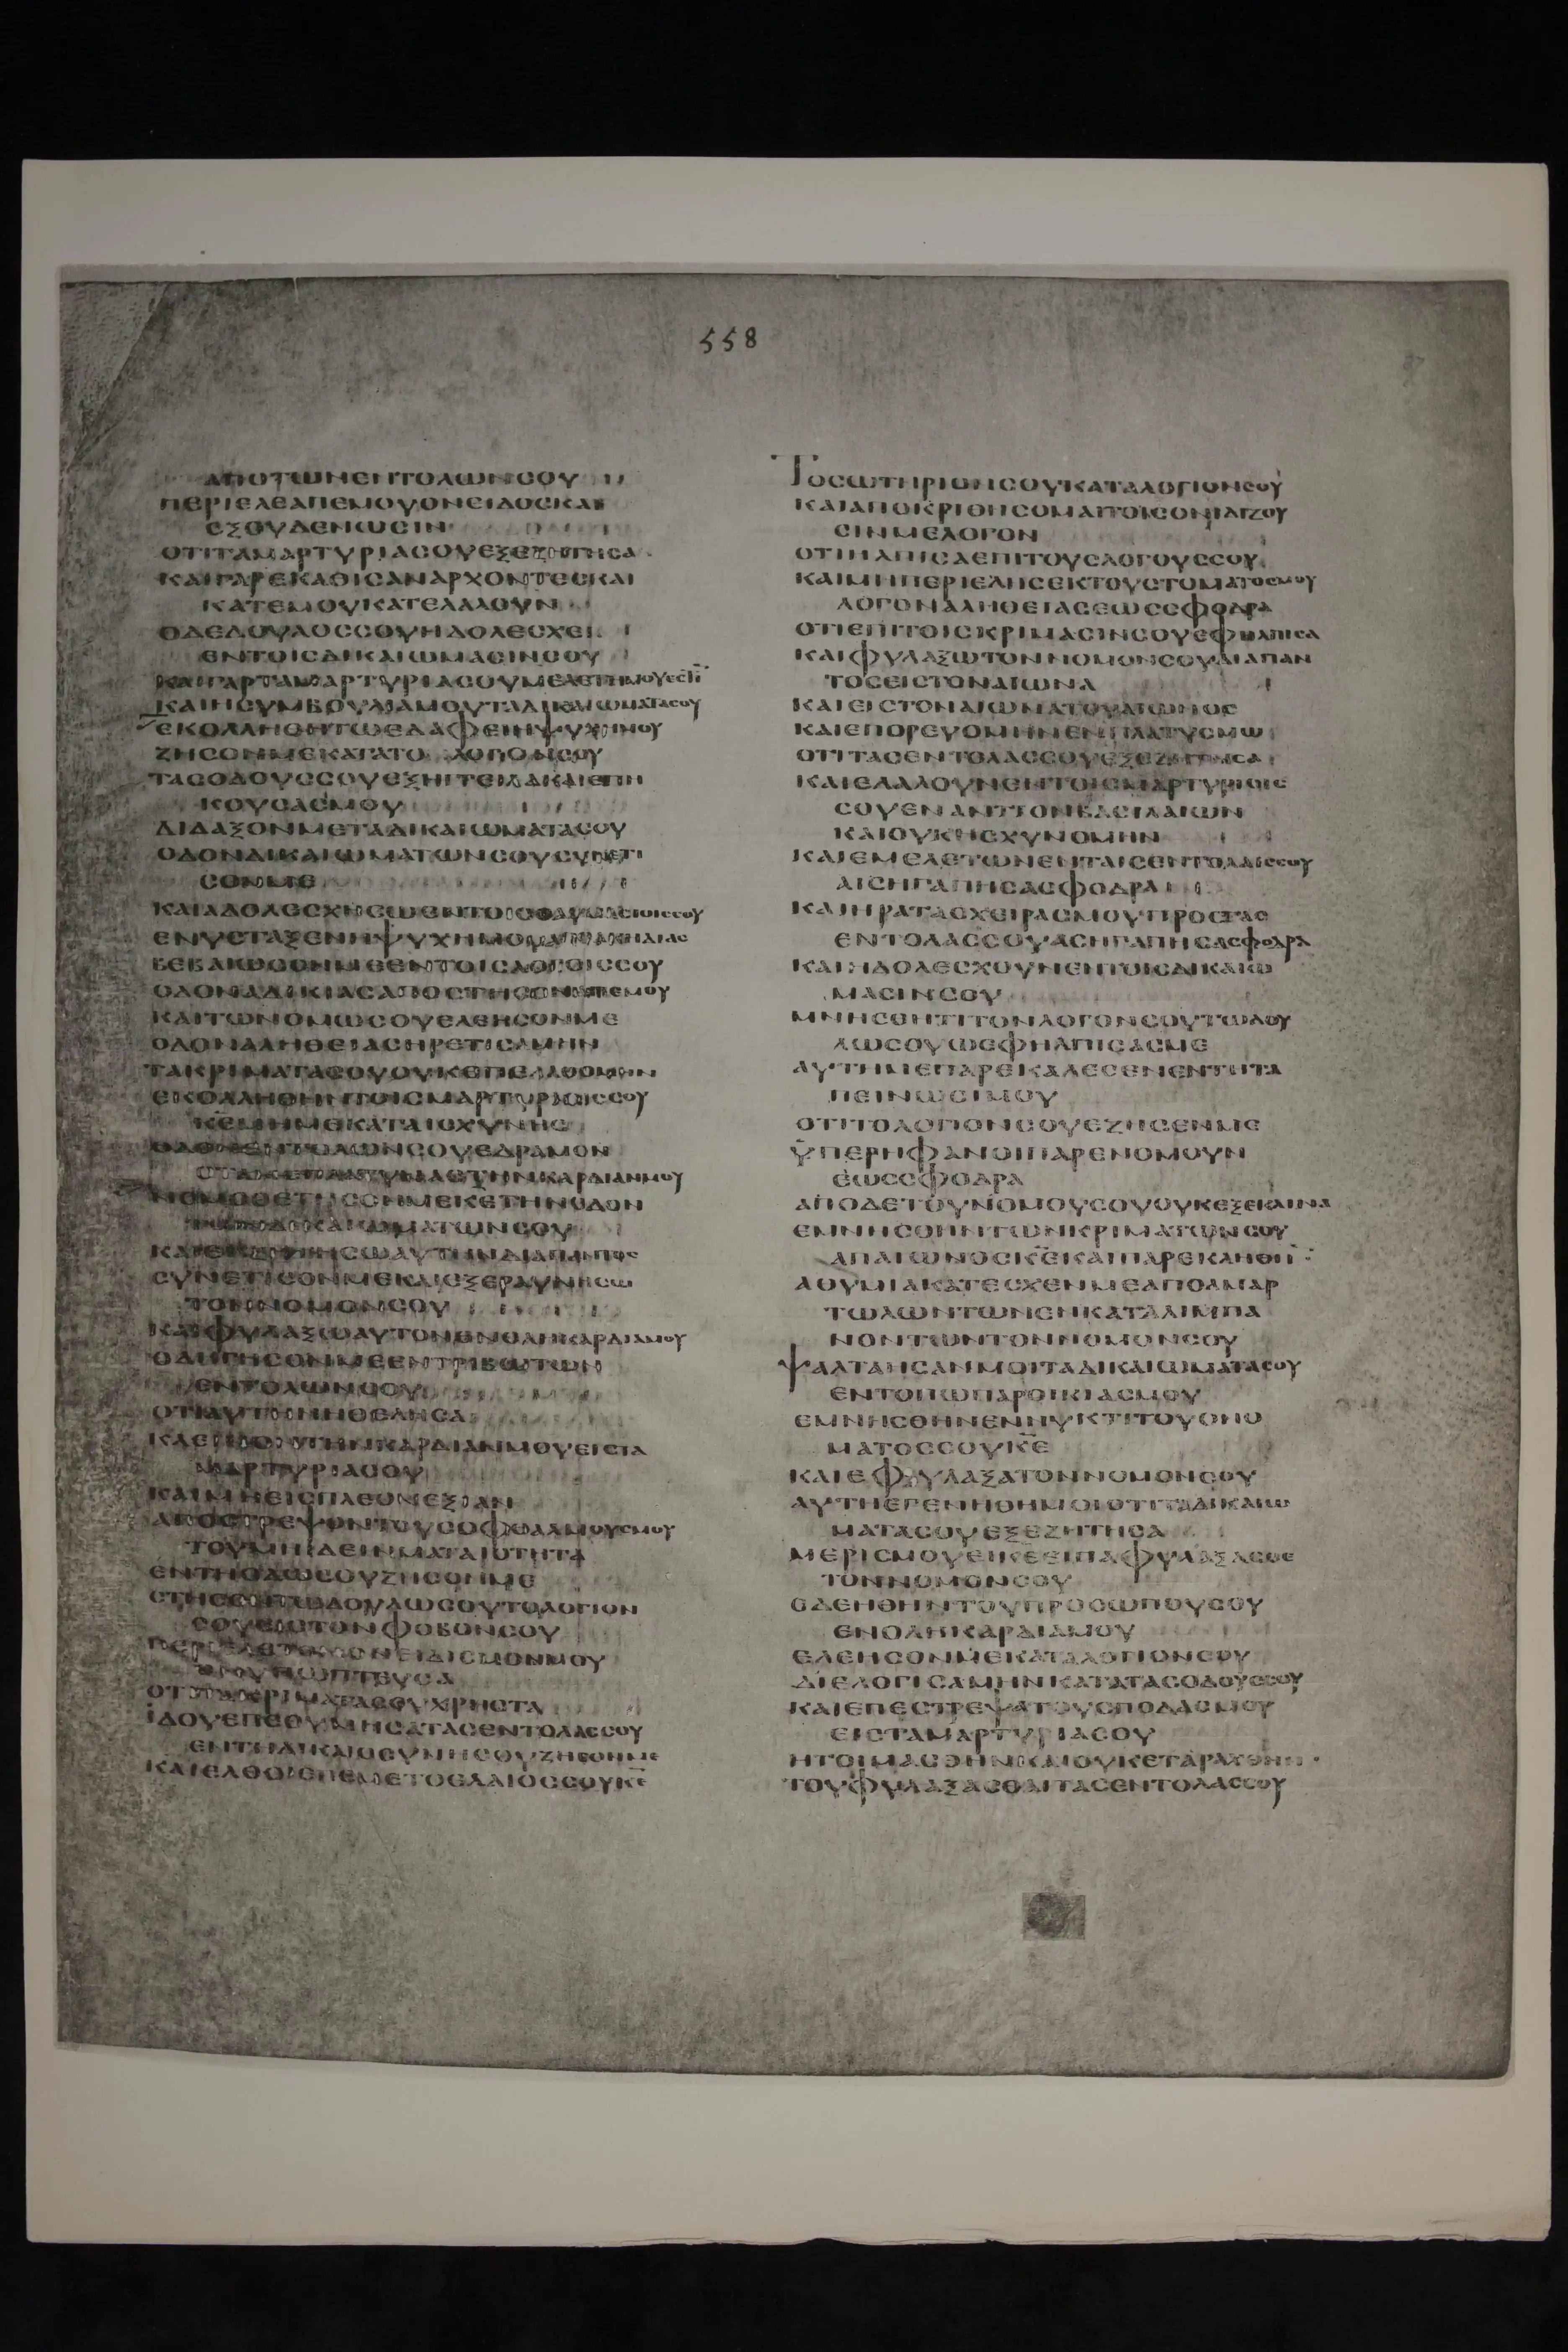 558
ΑΠΟΤΩΝΕΝΤΟΛΩΝСΟΥ
ΠΕΡΙΕΛΕΑΠΕΜΟΥΟΝΕΙΔΟСΚΑΙ
ΕΞΟΥΔΕΝΩСΙΝ
ΟΤΙΤΑΜΑΡΤΥΡΙΑСΟΥΕΞΕΖΗΤΗСΑ
ΚΑΙΓΑΡΕΚΑΘΙСΑΝΑΡΧΟΝΤΕСΚΑΙ
ΚΑΤΕΜΟΥΚΑΤΕΛΑΛΟΥΝ
ΟΔΕΔΟΥΛΟССΟΥΗΔΟΛΕСΧΕΙ
ΕΝΤΟΙСΔΙΚΑΙΩΜΑСΙΝСΟΥ
ΚΑΙΓΑΡΤΑΜΑΡΤΥΡΙΑСΟΥΜΕΛΕΤΗΜΟΥΕСΤΙ
ΚΑΙΗСΥΜΒΟΥΛΙΑΜΟΥΤΑΔΙΚΑΙΩΜΑΤΑСΟΥ
ΕΚΟΛΛΗΘΗΤΩΕΔΑΦΕΙΗΨΥΧΗΜΟΥ
ΖΗСΟΝΜΕΚΑΤΑΤΟΝΛΟΓΟΝСΟΥ
ΤΑСΟΔΟΥССΟΥΕΞΗΓΓΕΙΛΑΚΑΙΕΠΗ
ΚΟΥСΑСΜΟΥ
ΔΙΔΑΞΟΝΜΕΤΑΔΙΚΑΙΩΜΑΤΑСΟΥ
ΟΔΟΝΔΙΚΑΙΩΜΑΤΩΝСΟΥСΥΝΕΤΙ
СΟΝΜΕ
ΚΑΙΑΔΟΛΕСΧΗСΩΕΝΤΟΙСΘΑΥΜΑСΙΟΙССΟΥ
ΕΝΥСΤΑΞΕΝΗΨΥΧΗΜΟΥΑΠΟΑΚΗΔΙΑС
ΒΕΒΑΙΩСΟΝΜΕΕΝΤΟΙСΛΟΓΟΙССΟΥ
ΟΔΟΝΑΔΙΚΙΑСΑΠΟСΤΗСΟΝΑΠΕΜΟΥ
ΚΑΙΤΩΝΟΜΩСΟΥΕΛΕΗСΟΝΜΕ
ΟΔΟΝΑΛΗΘΕΙΑСΗΡΕΤΙСΑΜΗΝ
ΤΑΚΡΙΜΑΤΑСΟΥΟΥΚΕΠΕΛΑΘΟΜΗΝ
ΕΚΟΛΛΗΘΗΝΤΟΙСΜΑΡΤΥΡΙΟΙССΟΥ
ΚΕΜΗΜΕΚΑΤΑΙСΧΥΝΗС
ΟΔΟΝΕΝΤΟΛΩΝСΟΥΕΔΡΑΜΟΝ
ΟΤΑΝΕΠΛΑΤΥΝΑСΤΗΝΚΑΡΔΙΑΝΜΟΥ
ΝΟΜΟΘΕΤΗСΟΝΜΕΚΕΤΗΝΟΔΟΝ
ΤΩΝΔΙΚΑΙΩΜΑΤΩΝСΟΥ
ΚΑΙΕΚΖΗΤΗСΩΑΥΤΗΝΔΙΑΠΑΝΤΟС
СΥΝΕΤΙСΟΝΜΕΚΑΙΕΞΕΡΑΥΝΗСΩ
ΤΟΝΝΟΜΟΝСΟΥ
ΚΑΙΦΥΛΑΞΩΑΥΤΟΝΕΝΟΛΗΚΑΡΔΙΑΜΟΥ
ΟΔΗΓΗСΟΝΜΕΕΝΤΡΙΒΩΤΩΝ
ΕΝΤΟΛΩΝСΟΥ
ΟΤΙΑΥΤΗΝΗΘΕΛΗСΑ
ΚΛΕΙΝΟΝΤΗΝΚΑΡΔΙΑΝΜΟΥΕΙСΤΑ
ΜΑΡΤΥΡΙΑСΟΥ
ΚΑΙΜΗΕΙСΠΛΕΟΝΕΞΙΑΝ
ΑΠΟСΤΡΕΨΟΝΤΟΥСΟΦΘΑΛΜΟΥСΜΟΥ
ΤΟΥΜΗΙΔΕΙΝΜΑΤΑΙΟΤΗΤΑ
ΕΝΤΗΟΔΩСΟΥΖΗСΟΝΜΕ
СΤΗСΟΝΤΩΔΟΥΛΩСΟΥΤΟΛΟΓΙΟΝ
СΟΥΕΙСΤΟΝΦΟΒΟΝСΟΥ
ΠΕΡΙΕΛΕΤΟΝΟΝΕΙΔΙСΜΟΝΜΟΥ
ΟΝΥΠΩΠΤΕΥСΑ
ΟΤΙΤΑΚΡΙΜΑΤΑСΟΥΧΡΗСΤΑ
ΙΔΟΥΕΠΕΘΥΜΗСΑΤΑСΕΝΤΟΛΑССΟΥ
ΕΝΤΗΔΙΚΑΙΟСΥΝΗСΟΥΖΗСΟΝΜΕ
ΚΑΙΕΛΘΟΙСΠΕΜΕΤΟΕΛΑΙΟССΟΥΚΕ
ΤΟСΩΤΗΡΙΟΝСΟΥΚΑΤΑΛΟΓΙΟΝСΟΥ
ΚΑΙΑΠΟΚΡΙΘΗСΟΜΑΙΤΟΙСΟΝΙΔΙΖΟΥ
СΙΝΜΕΛΟΓΟΝ
ΟΤΙΗΛΠΙСΑΕΠΙΤΟΥСΛΟΓΟΥССΟΥ
ΚΑΙΜΗΠΕΡΙΕΛΗСΕΚΤΟΥСΤΟΜΑΤΟСΜΟΥ
ΛΟΓΟΝΑΛΗΘΕΙΑСΕΩССΦΟΔΡΑ
ΟΤΙΕΠΙΤΟΙСΚΡΙΜΑСΙΝСΟΥΕΦΗΛΠΙСΑ
ΚΑΙΦΥΛΑΞΩΤΟΝΝΟΜΟΝСΟΥΔΙΑΠΑΝ
ΤΟСΕΙСΤΟΝΑΙΩΝΑ
ΚΑΙΕΙСΤΟΝΑΙΩΝΑΤΟΥΑΙΩΝΟС
ΚΑΙΕΠΟΡΕΥΟΜΗΝΕΝΠΛΑΤΥСΜΩ
ΟΤΙΤΑСΕΝΤΟΛΑССΟΥΕΞΕΖΗΤΗСΑ
ΚΑΙΕΛΑΛΟΥΝΕΝΤΟΙСΜΑΡΤΥΡΙΟΙС
СΟΥΕΝΑΝΤΙΟΝΒΑСΙΛΑΙΩΝ
ΚΑΙΟΥΚΗСΧΥΝΟΜΗΝ
ΚΑΙΕΜΕΛΕΤΩΝΕΝΤΑΙСΕΝΤΟΛΑΙССΟΥ
ΑΙСΗΓΑΠΗСΑСΦΟΔΡΑ
ΚΑΙΗΡΑΤΑСΧΕΙΡΑСΜΟΥΠΡΟСΤΑС
ΕΝΤΟΛΑССΟΥΑСΗΓΑΠΗСΑСΦΟΔΡΑ
ΚΑΙΗΔΟΛΕСΧΟΥΝΕΝΤΟΙСΔΙΚΑΙΩ
ΜΑСΙΝСΟΥ
ΜΝΗСΘΗΤΙΤΟΝΛΟΓΟΝСΟΥΤΩΔΟΥ
ΛΩСΟΥΩΕΦΗΛΠΙСΑСΜΕ
ΑΥΤΗΜΕΠΑΡΕΚΑΛΕСΕΝΕΝΤΗΤΑ
ΠΕΙΝΩСΙΜΟΥ
ΟΤΙΤΟΛΟΓΙΟΝСΟΥΕΖΗСΕΝΜΕ
ΫΠΕΡΗΦΑΝΟΙΠΑΡΕΝΟΜΟΥΝ
ΕΩССΦΟΔΡΑ
ΑΠΟΔΕΤΟΥΝΟΜΟΥСΟΥΟΥΚΕΞΕΚΛΙΝΑ
ΕΜΝΗСΘΗΝΤΩΝΚΡΙΜΑΤΩΝСΟΥ
ΑΠΑΙΩΝΟСΚΕΚΑΙΠΑΡΕΚΛΗΘΗ
ΑΘΥΜΙΑΚΑΤΕСΧΕΝΜΕΑΠΟΑΜΑΡ
ΤΩΛΩΝΤΩΝΕΝΚΑΤΑΛΙΜΠΑ
ΝΟΝΤΩΝΤΟΝΝΟΜΟΝСΟΥ
ΨΑΛΤΑΗСΑΝΜΟΙΤΑΔΙΚΑΙΩΜΑΤΑСΟΥ
ΕΝΤΟΠΩΠΑΡΟΙΚΙΑСΜΟΥ
ΕΜΝΗСΘΗΝΕΝΝΥΚΤΙΤΟΥΟΝΟ
ΜΑΤΟССΟΥΚΕ
ΚΑΙΕΦΥΛΑΞΑΤΟΝΝΟΜΟΝСΟΥ
ΑΥΤΗΕΓΕΝΗΘΗΜΟΙΟΤΙΤΑΔΙΚΑΙΩ
ΜΑΤΑСΟΥΕΞΕΖΗΤΗСΑ
ΜΕΡΙСΜΟΥΕΙΚΕΕΙΠΑΦΥΛΑΞΑСΘΕ
ΤΟΝΝΟΜΟΝСΟΥ
ΕΔΕΗΘΗΝΤΟΥΠΡΟСΩΠΟΥСΟΥ
ΕΝΟΛΗΚΑΡΔΙΑΜΟΥ
ΕΛΕΗСΟΝΜΕΚΑΤΑΛΟΓΙΟΝСΟΥ
ΔΙΕΛΟΓΙСΑΜΗΝΚΑΤΑΤΑСΟΔΟΥССΟΥ
ΚΑΙΕΠΕСΤΡΕΨΑΤΟΥСΠΟΔΑСΜΟΥ
ΕΙСΤΑΜΑΡΤΥΡΙΑСΟΥ
ΗΤΟΙΜΑСΘΗΝΚΑΙΟΥΚΕΤΑΡΑΧΘΗΝ
ΤΟΥΦΥΛΑΞΑСΘΑΙΤΑСΕΝΤΟΛΑССΟΥ